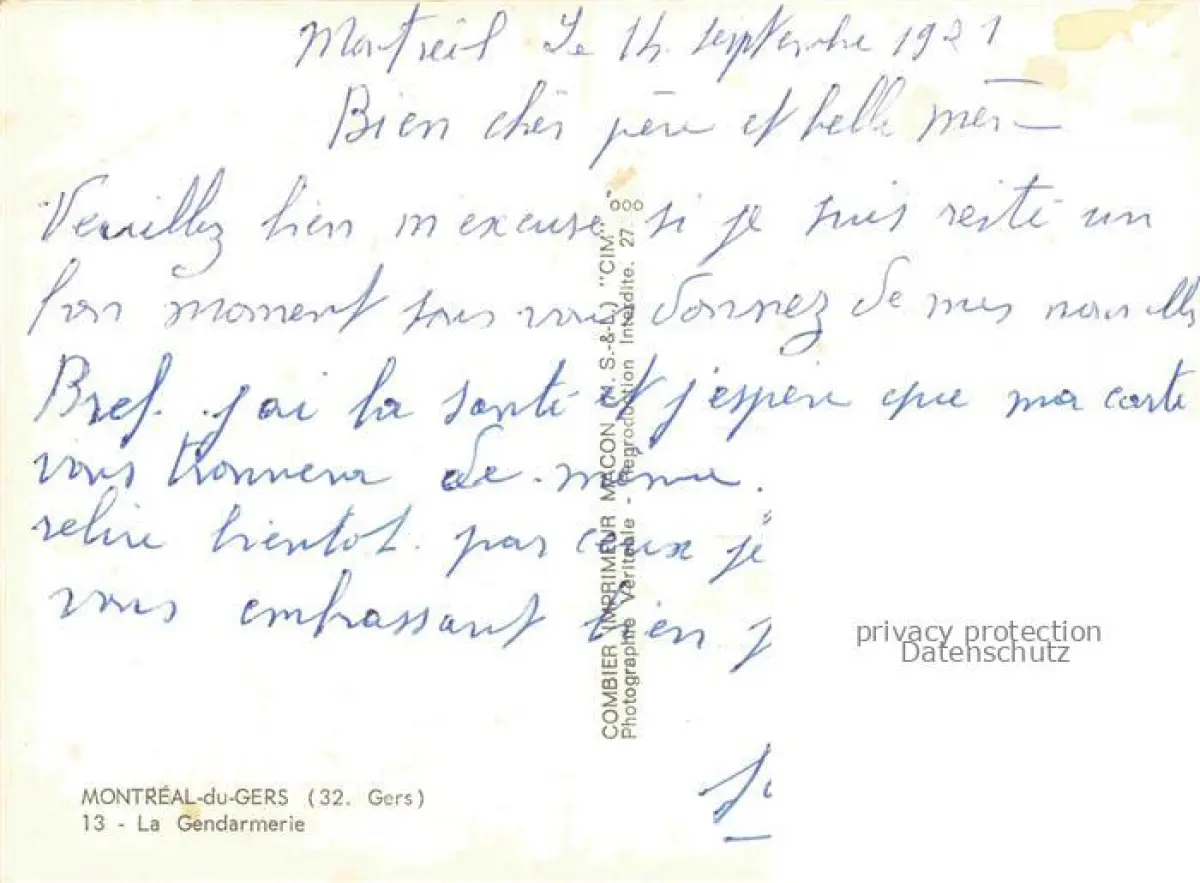 Montreil le 14 septembre 1921
Bien cher père et belle mère
Veuillez bien m'excuse si je suis resté un
bon moment sans vous donnez de mes nouvelles
Bref. j'ai la santé et j'espère que ma carte
vous trouvera de même.
relire bientot. par ceux je
vous embrassant bien
MONTRÉAL-du-GERS (32. Gers)
13 - La Gendarmerie
COMBIER IMPRIMEUR MACON (M. S.-&-L.) "CIM"
Photographie Véritable - Reproduction Interdite. 27 000
privacy protection
Datenschutz